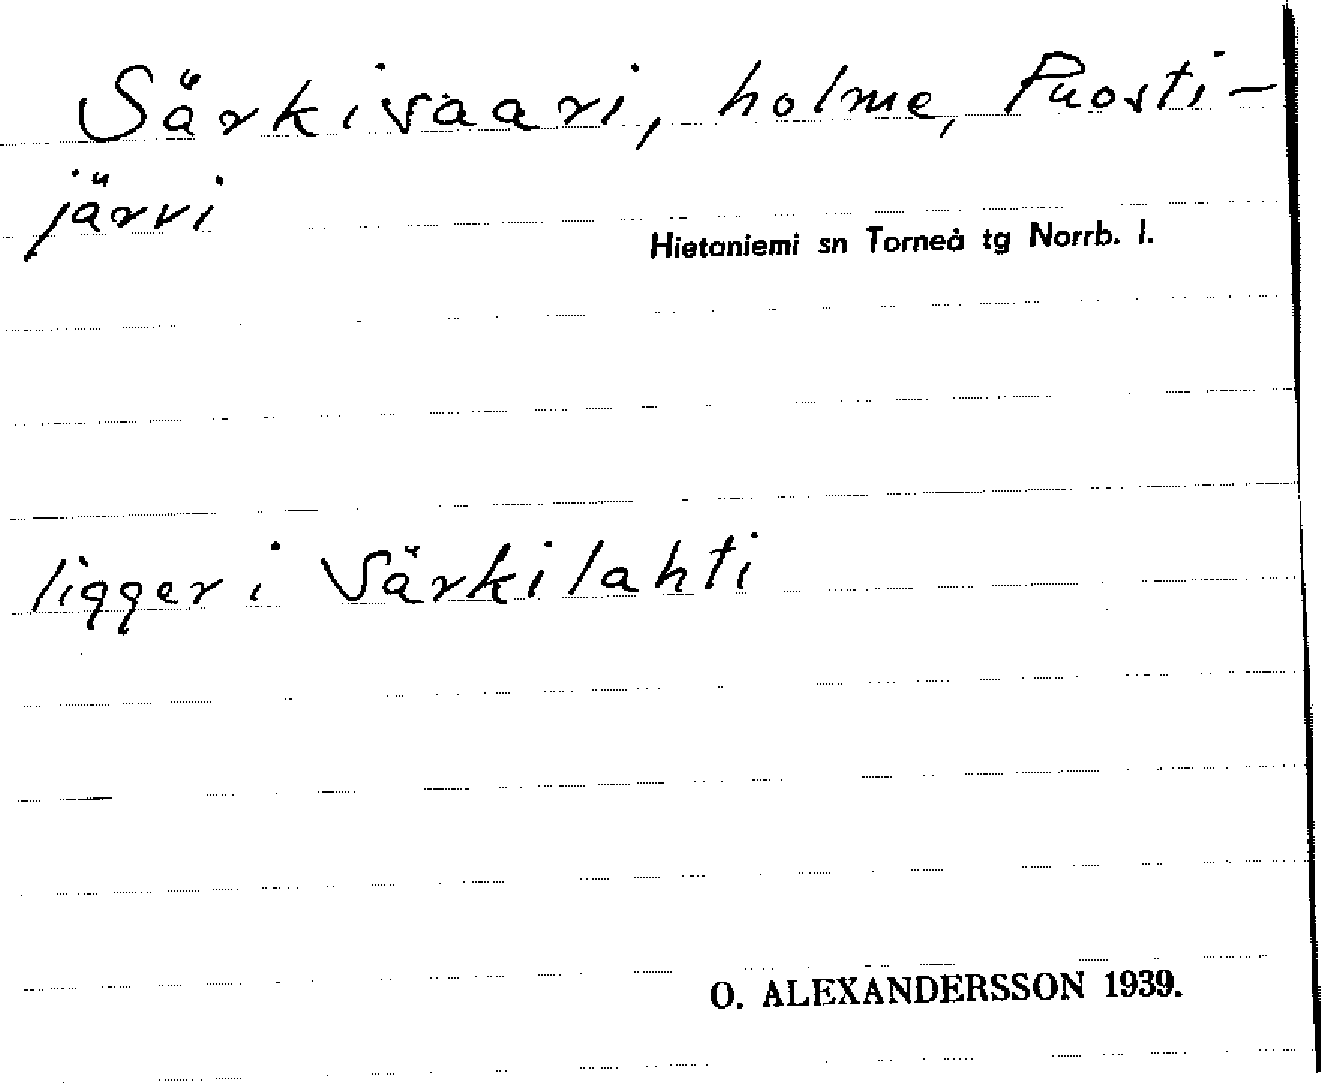 Särkivaari, holme, Puosti-
järvi
Hietaniemi sn Torneå tg Norrb. l.
ligger i Särkilahti
O. ALEXANDERSSON 1939.